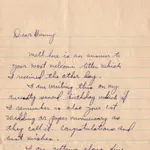 Dear Henry
Well here is an answer to
your most welcome letter which
I received the other day.
I am writing this on my
birthday which if
I remember is also your 1st
Wedding or paper anniversary as
they call it. Congratulations and
best wishes.
I am getting along